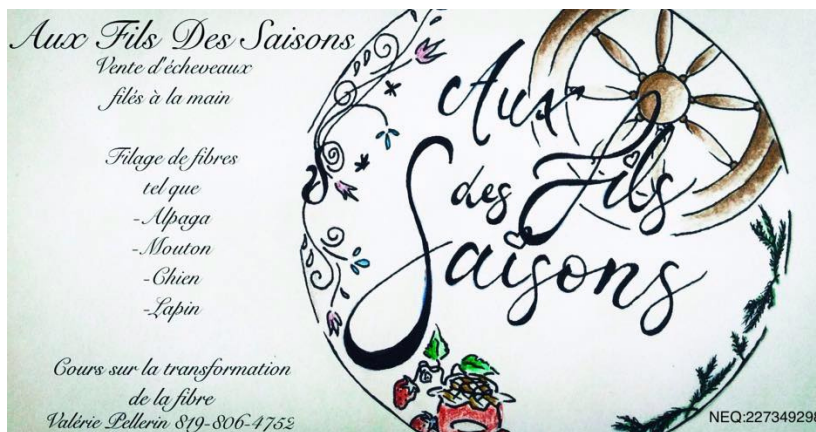 Aux Fils Des Saisons
Vente d'écheveaux
filés à la main
Filage de fibres
tel que
-Alpaga
-Mouton
-Chien
-Lapin
Cours sur la transformation
de la fibre
Valérie Pellerin 819-806-4752
Aux
des Fils
Saisons
NEQ:227349298